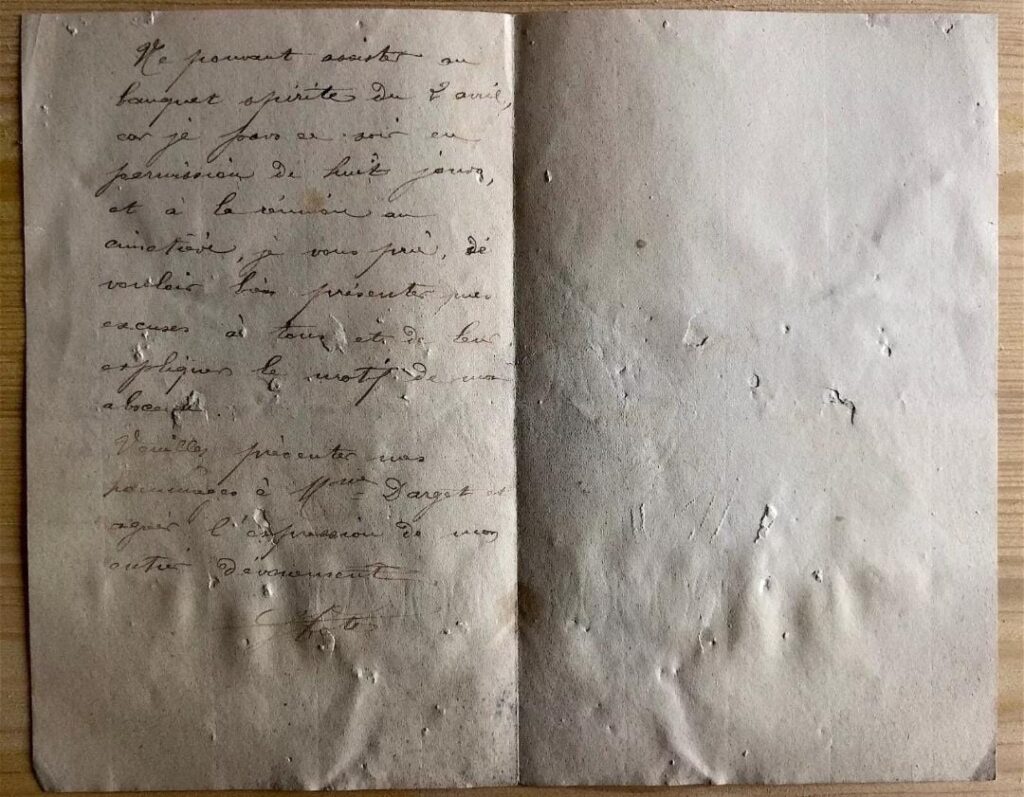 Ne pouvant assister au
banquet spirite du 2 avril,
car je pars ce soir en
permission de huit jours,
et à la réunion au
cimetière, je vous prie, de
vouloir bien présenter mes
excuses à tous et de leur
expliquer le motif de mon
absence.
Veuillez présenter mes
hommages à Mme Darget et
agréer l'expression de mon
entier dévouement.